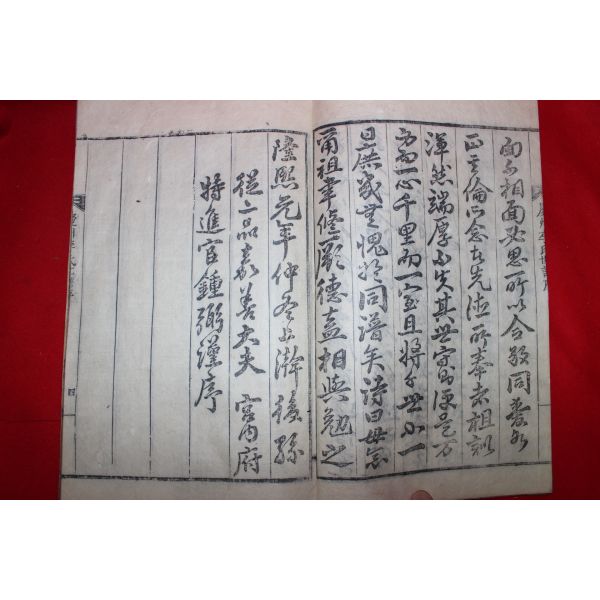 面不相面必思所以合敬同養
正其倫而念友先德所奉者祖訓
渾然端厚不失其世守則便是万
万而一心千里而一室且將千世而一
日庶幾無愧於同譜矣詩曰毋念
爾祖聿修厥德盍相與勉之
隆熙元年仲冬上澣後孫
從二品嘉善大夫 宮內府
特進官鍾弼謹序
四